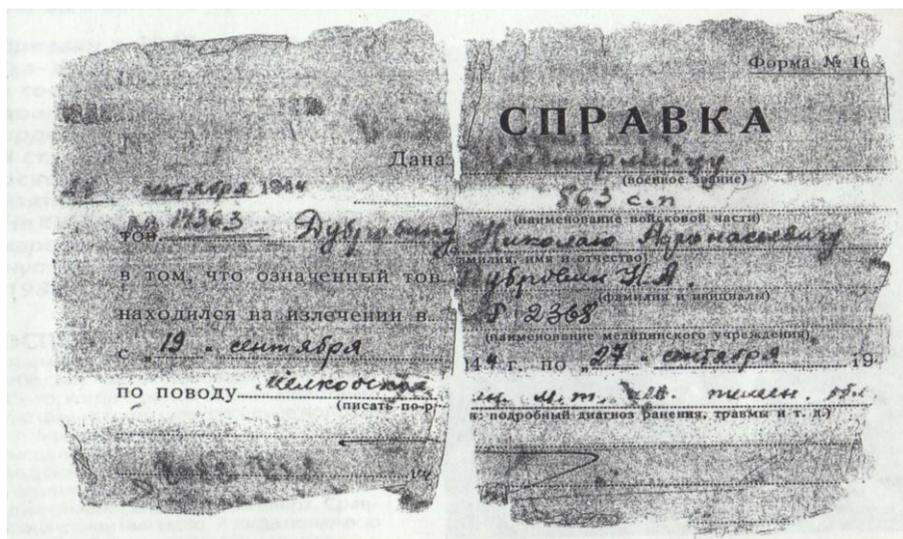 Форма № 16
СПРАВКА
Дана
красноармейцу
(военное звание)
сентября 1944
863 с.п
(наименование войсковой части)
№ 14363
тов. Дубровину Николаю Афонасьевичу
фамилия, имя и отчество)
в том, что означенный тов. Дубровин Н.А.
(фамилия и инициалы)
находился на излечении в 2368
(наименование медицинского учреждения)
с „19“ сентября 194 г. по „27“ сентября 19
по поводу м.т. обл
(писать по-р н: подробный диагноз ранения, травмы и т. д.)